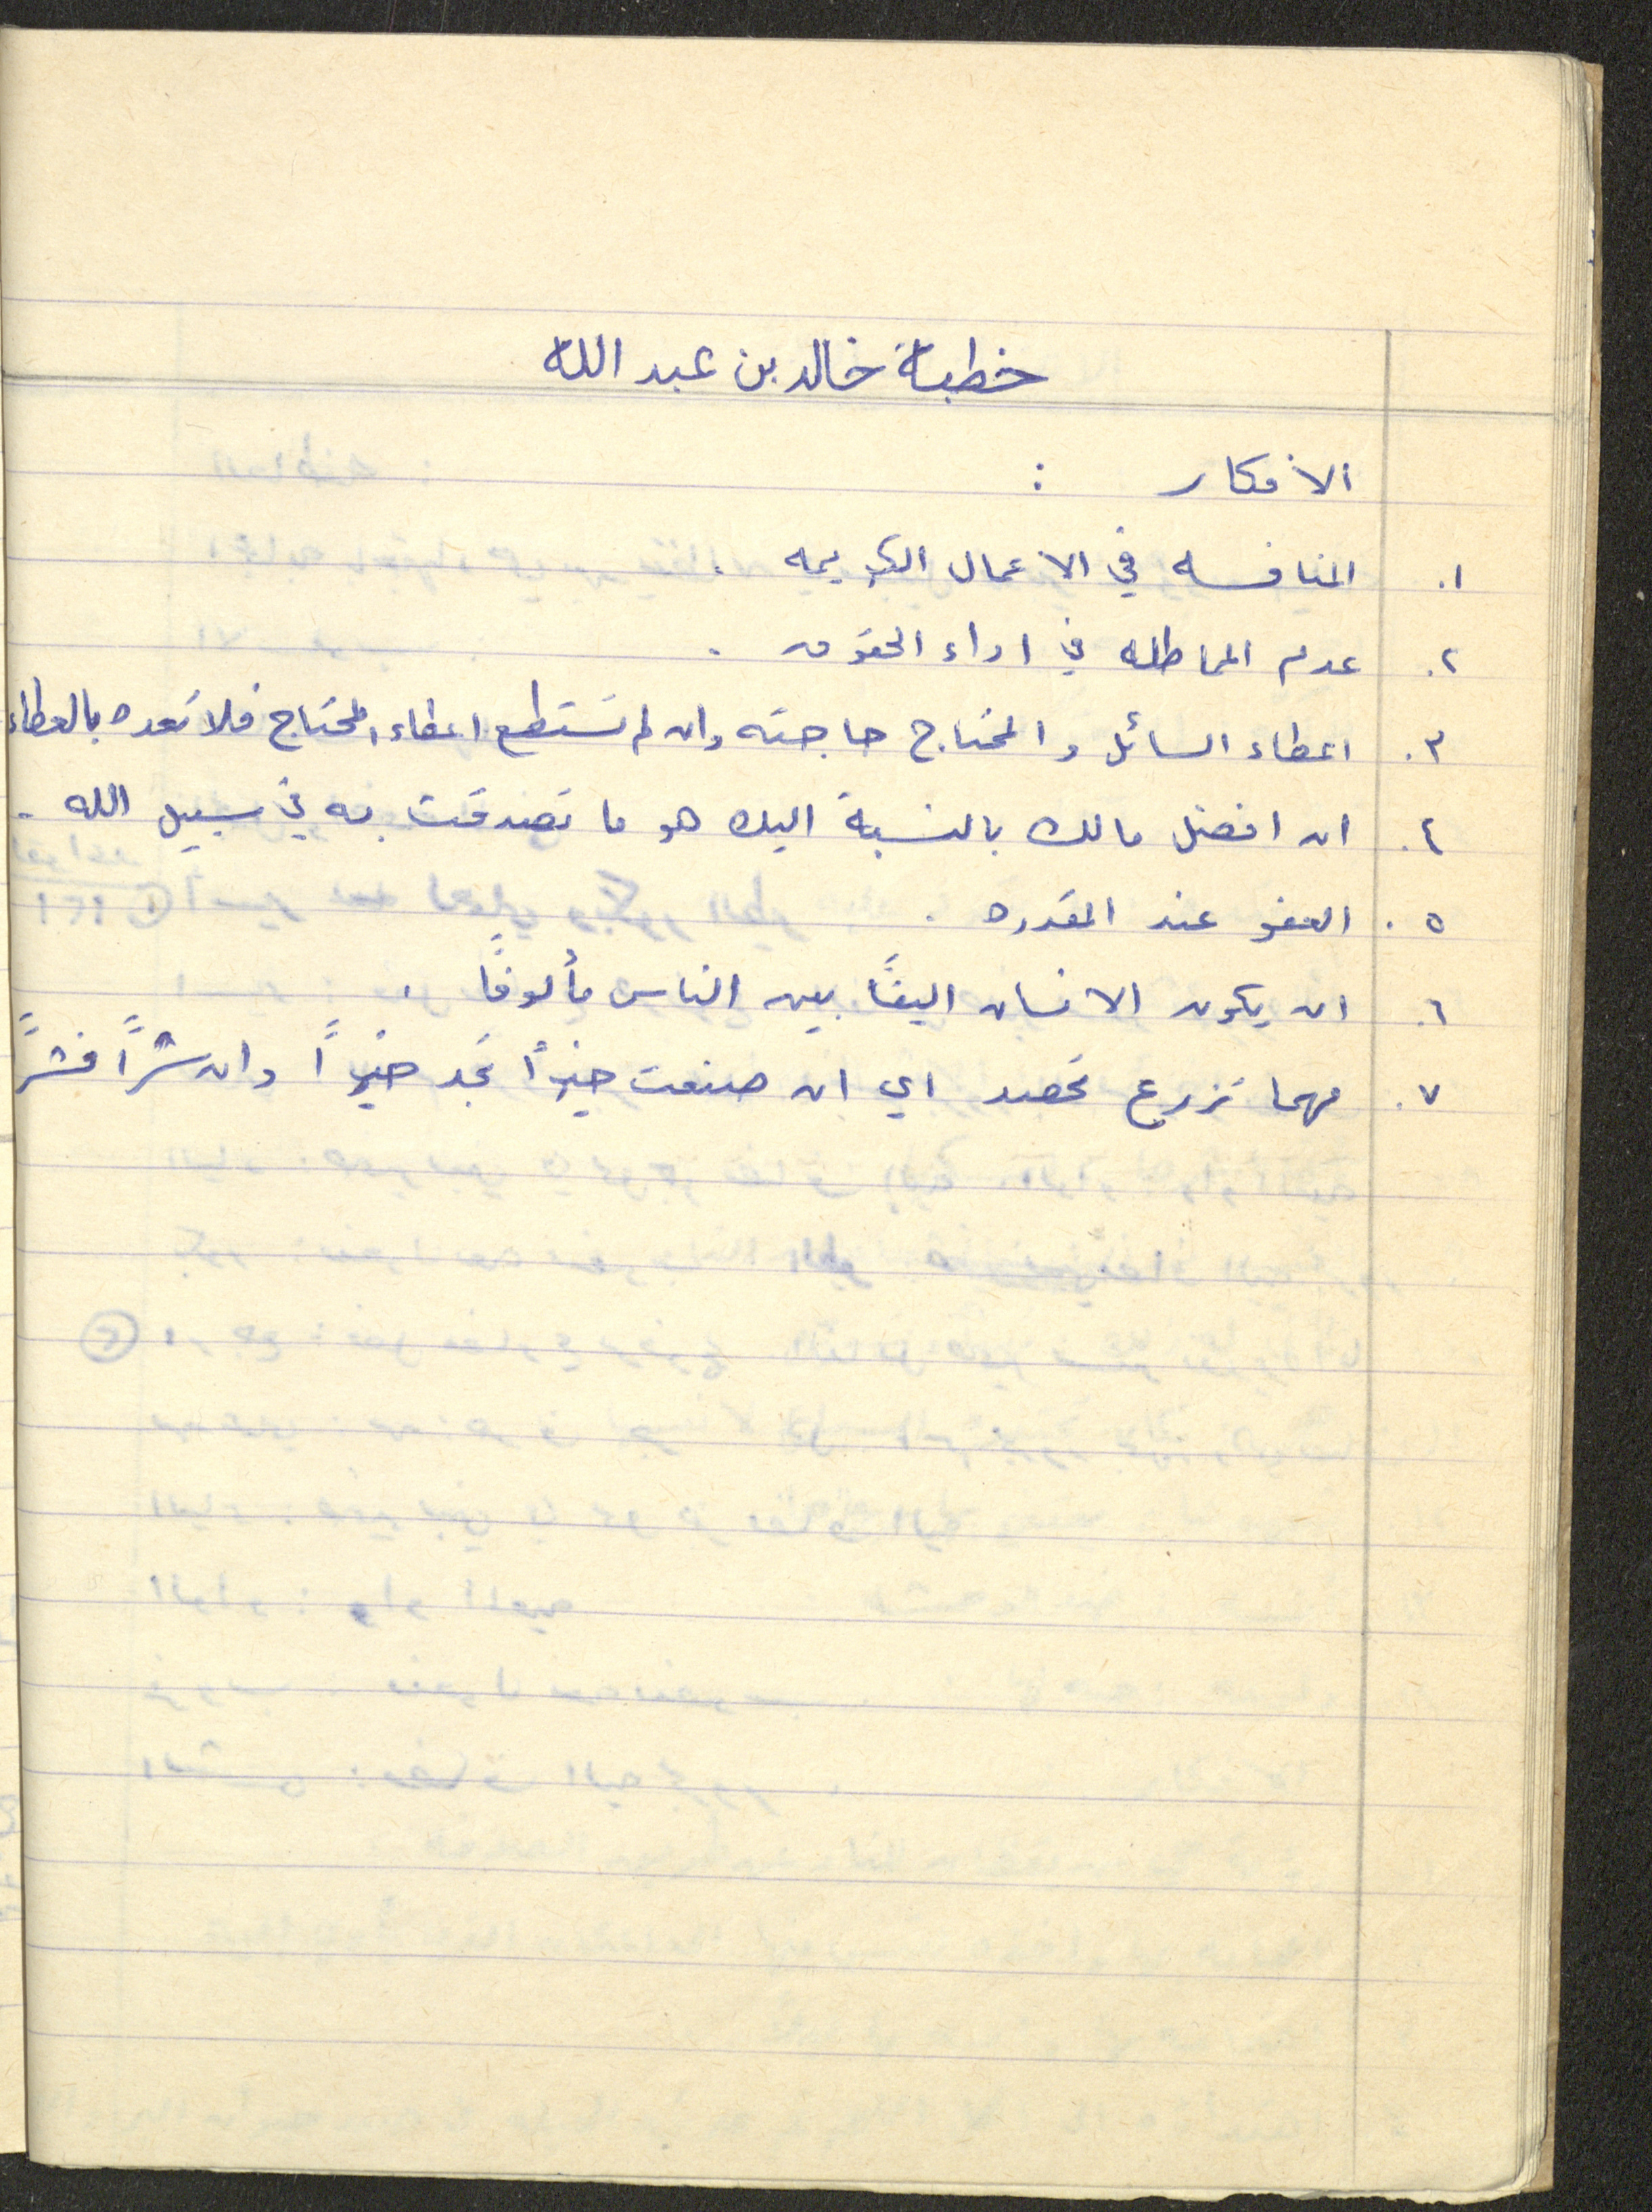 خطبة خالد بن عبد الله
الافكار :
١. المنافسه في الاعمال الكريمه .
٢. عدم المماطله في اداء الحقوق .
٣. اعطاء السائل و المحتاج حاجته وان لم تستطع اعطاء المحتاج فلا تعده بالعطاء
٤. ان افضل مالك بالنسبة اليك هو ما تصدقت به في سبيل الله .
٥. العفو عند المقدره .
٦. ان يكون الانسان اليفًا بين الناس مألوفًا .
٧. مهما تزرع تحصد اي ان صنعت خيرًا تجد خيرًا وان شرًا فشرًا